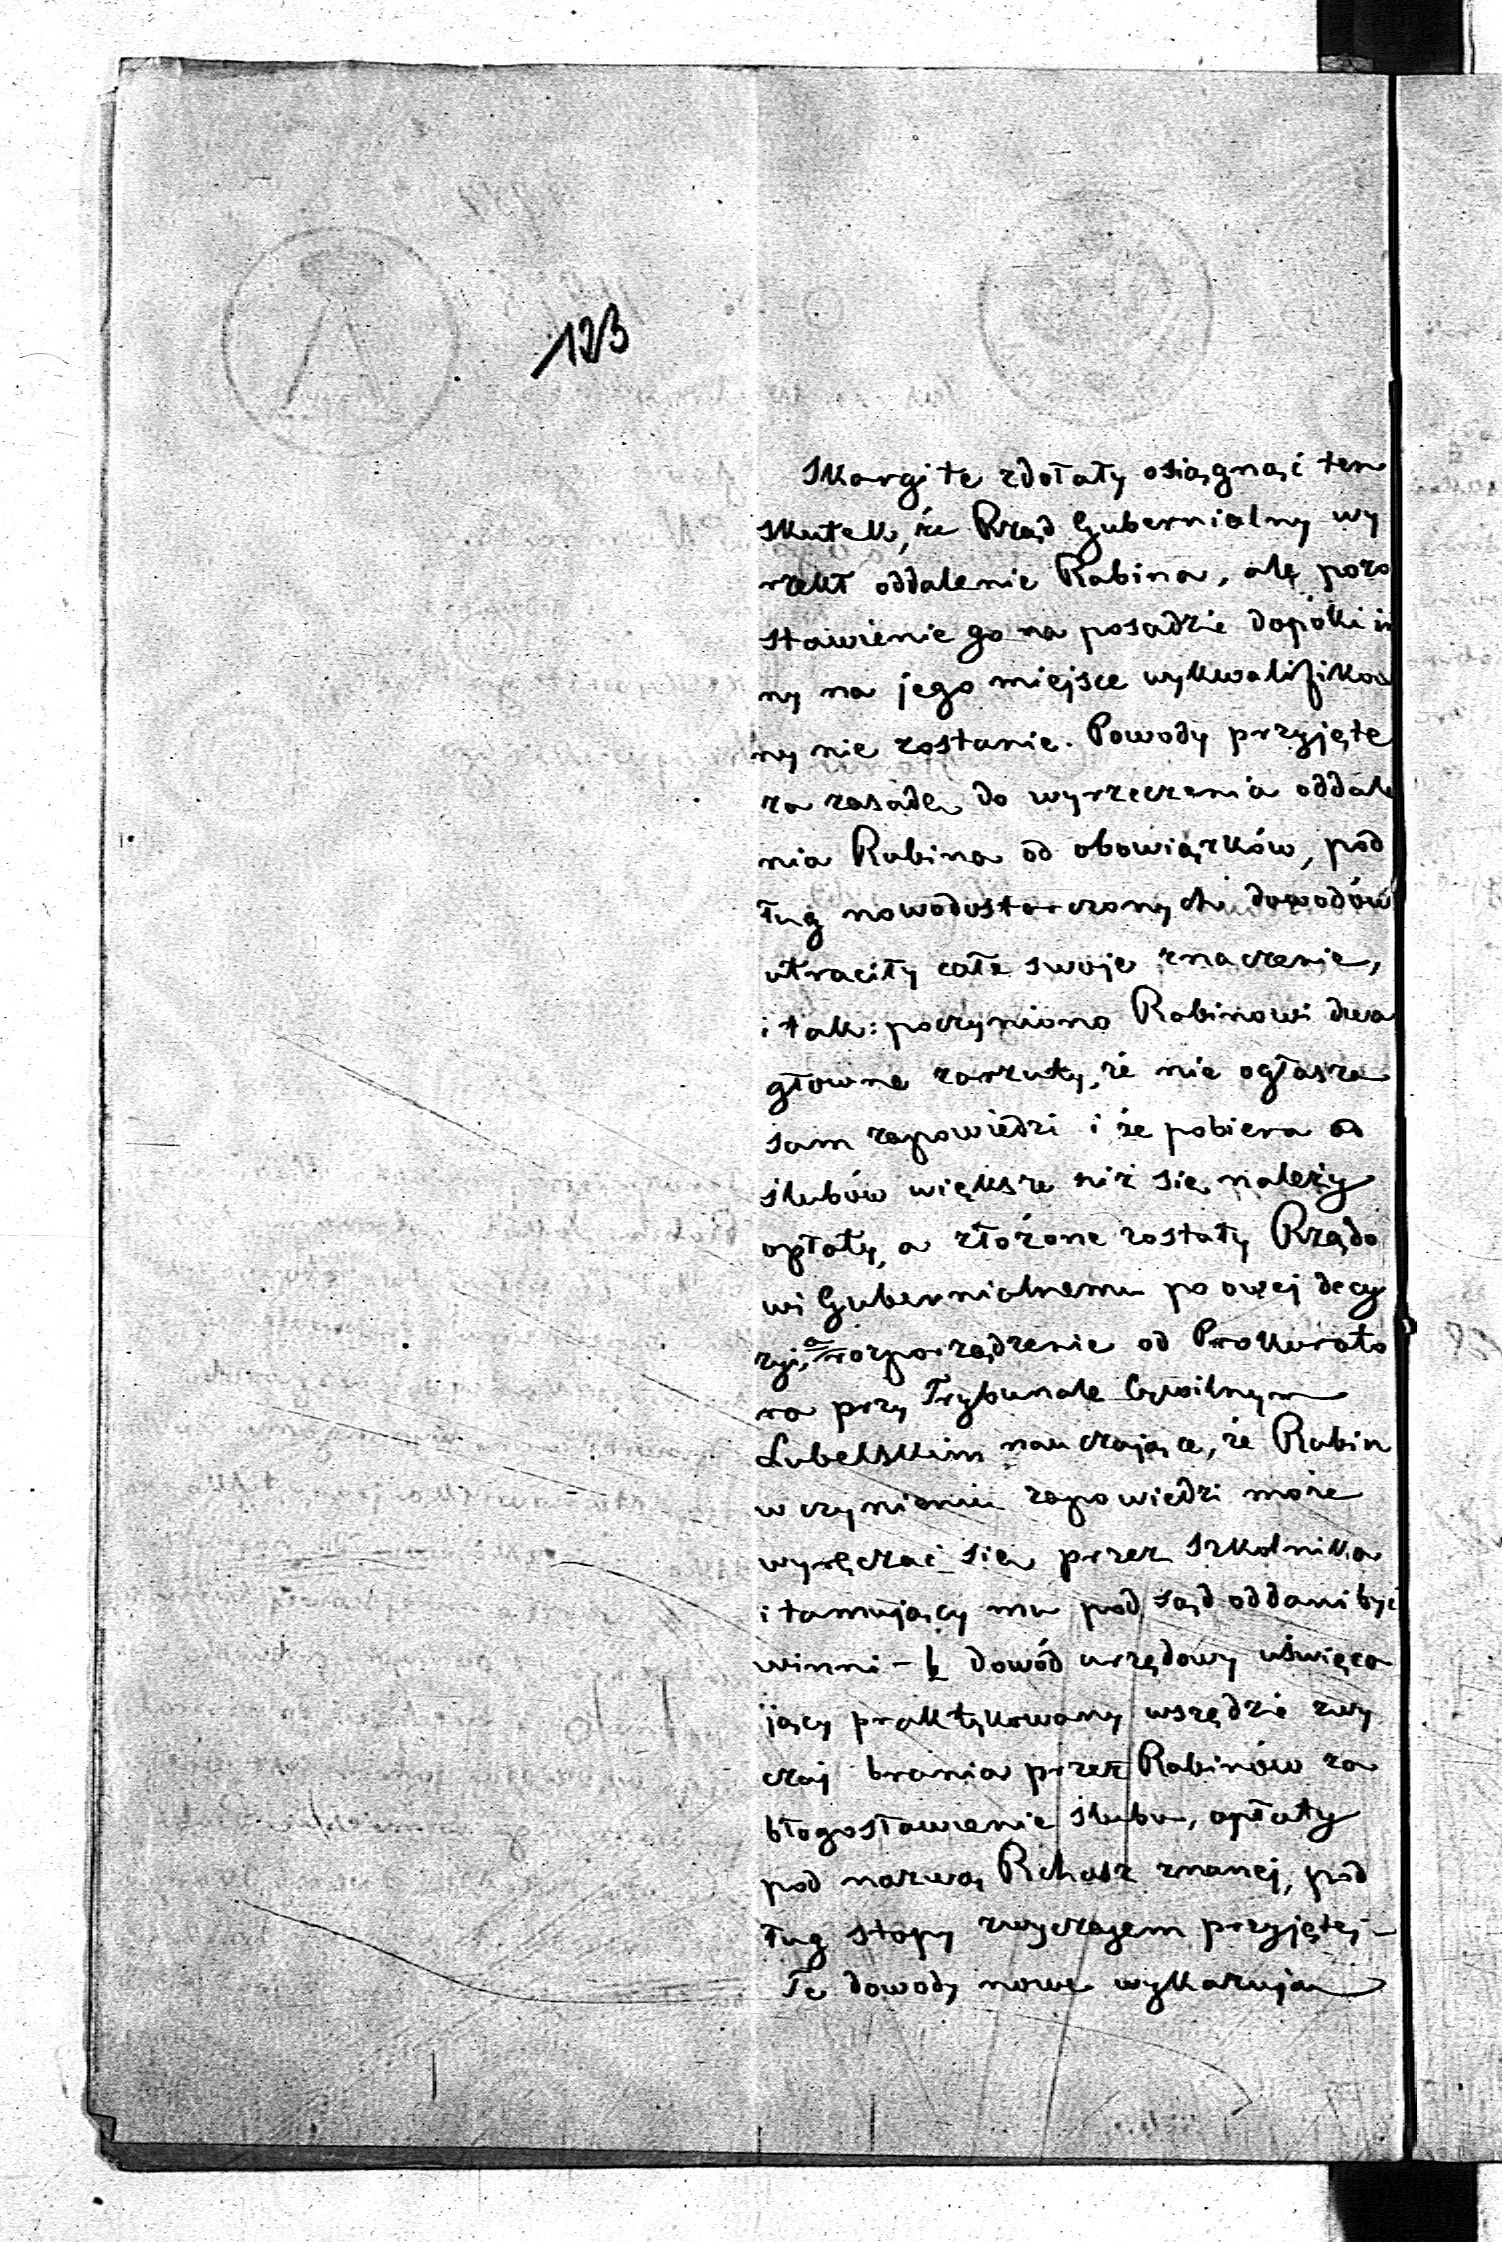 123
Skargi te zdołały osiągnąć ten
skutek, że Rząd Gubernialny wy
rzekł oddalenie Rabina, ale pozo
stawienie go na posadzie dopóki in
ny na jego miejsce wykwalifikowa
ny nie zostanie. Powody przyjęte
za zasadę do wyrzeczenia oddale
nia Rabina od obowiązków, pod
ług nowodostarczonych dowodów
utraciły całe swoje znaczenie,
i tak: poczyniono Rabinowi dwa
głowne zarzuty, że nie ogłasza
sam zapowiedzi i że pobiera od
ślubów większe niż się należy
opłaty, a złożone zostały Rządo
wi Gubernialnemu po owej decy
zyi, a rozporządzenie od Prokurato
ra przy Trybunale Cywilnym
Lubelskim nauczające, że Rabin
w czynieniu zapowiedzi może
wyręczać się przez szkolnika
i tamujący mu pod sąd oddani być
winni – b dowód urzędowy uświęca
jący praktykowany wszędzie zwy
czaj brania przez Rabinów za
błogosławienie ślubu, opłaty
pod nazwą Rchasz znanej, pod
ług stopy zwyczajem przyjętej –
Te dowody nowe wykazują